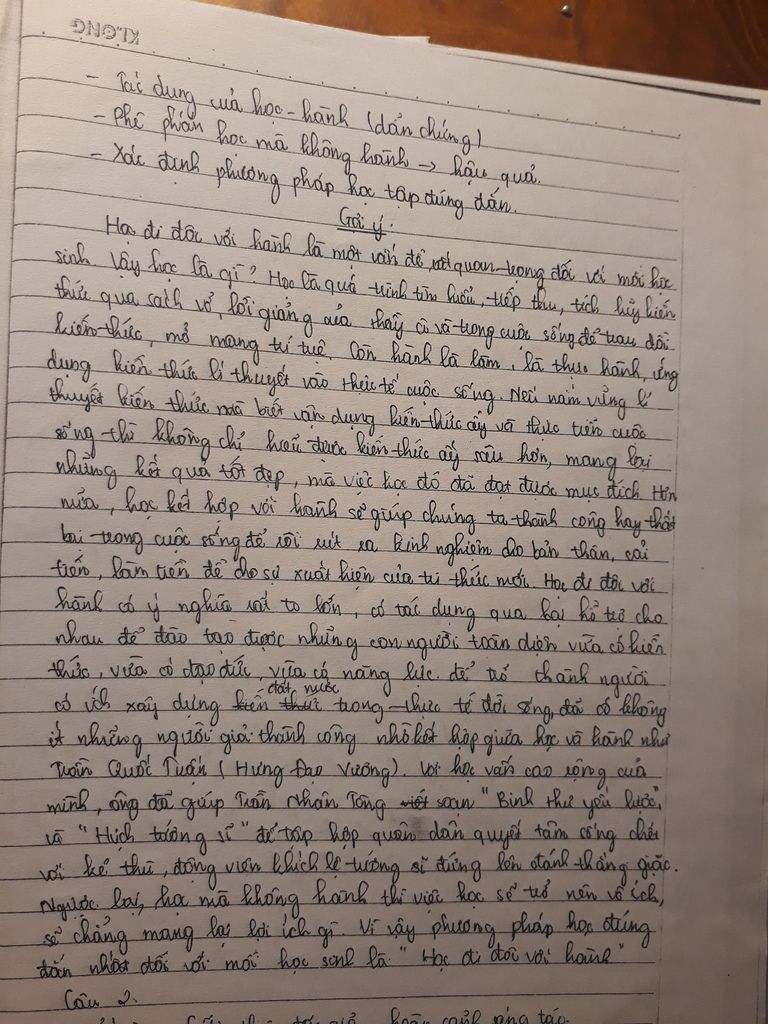 KLONG
- Tác dụng của học - hành (dẫn chứng)
- Phê phán học mà không hành → hậu quả.
- Xác định phương pháp học tập đúng đắn.
Gợi ý:
Học đi đôi với hành là một vấn đề rất quan trọng đối với mỗi học
sinh. Vậy học là gì? Học là quá trình tìm hiểu, tiếp thu, tích lũy kiến
thức qua sách vở, lời giảng của thầy cô và trong cuộc sống để trau dồi
kiến thức, mở mang trí tuệ. Còn hành là làm, là thực hành, ứng
dụng kiến thức lí thuyết vào thực tế cuộc sống. Nếu nắm vững lí
thuyết kiến thức mà biết vận dụng kiến thức ấy và thực tiễn cuộc
sống thì không chỉ hiểu được kiến thức ấy sâu hơn, mang lại
những kết quả tốt đẹp, mà việc học đó đã đạt được mục đích. Hơn
nữa, học kết hợp với hành sẽ giúp chúng ta thành công hay thất
bại trong cuộc sống để rồi rút ra kinh nghiệm cho bản thân, cải
tiến, làm tiền đề cho sự xuất hiện của tri thức mới. Học đi đôi với
hành có ý nghĩa rất to lớn, có tác dụng qua lại hỗ trợ cho
nhau để đào tạo được những con người toàn diện vừa có kiến
thức, vừa có đạo đức, vừa có năng lực để trở thành người
có ích xây dựng kiến thức đất nước trong thực tế đời sống, đã có không
ít những người giỏi thành công nhờ kết hợp giữa học và hành như
Trần Quốc Tuấn (Hưng Đạo Vương). Với học vấn cao rộng của
mình, ông đã giúp Trần Nhân Tông viết soạn "Binh thư yếu lược",
và "Hịch tướng sĩ" để tập hợp quân dân quyết tâm
với kẻ thù, động viên khích lệ tướng sĩ đứng lên đánh thắng giặc.
Ngược lại, học mà không hành thì việc học sẽ trở nên vô ích,
sẽ chẳng mang lại lợi ích gì. Vì vậy phương pháp học đúng
đắn nhất đối với mỗi học sinh là "Học đi đôi với hành"
Câu 2.
hoàn cảnh sáng tác.